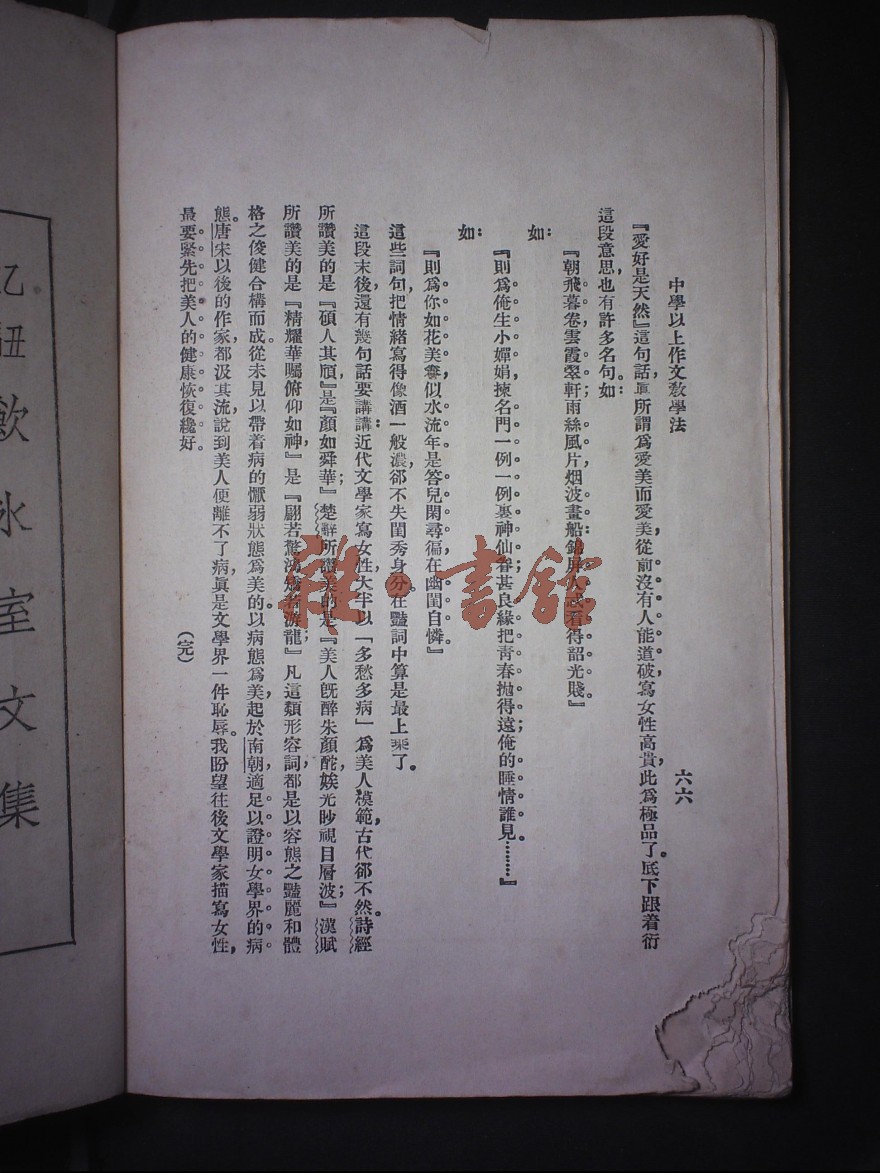 中學以上作文敎學法
六六
『愛好是天然』這句話，眞所謂爲愛美而愛美，從前沒有人能道破，寫女性高貴，此爲極品了。底下跟着衍
這段意思，也有許多名句。如：
『朝飛暮卷，雲霞翠軒；雨絲風片，烟波畫船；錦屏人忒看得韶光賤。』
如：
『則爲俺生小嬋娟，揀名門一例一例裏神仙眷。甚良緣把靑春拋得遠；俺的睡情誰見。………』
如：
『則爲你如花美眷，似水流年，是答兒閑尋徧，在幽閨自憐。』
這些詞句，把情緖寫得像酒一般濃，郤不失閨秀身分。在豔詞中算是最上乘了。
這段末後，還有幾句話要講講：近代文學家寫女性，大半以「多愁多病」爲美人模範，古代郤不然。詩經
所讚美的是『碩人其頎』，是『顏如舜華』；楚辭所讚美的是『美人旣醉朱顏酡，娭光眇視目層波』；漢賦
所讚美的是『精耀華矚俯仰如神』，是『翩若驚鴻矯若游龍』；凡這類形容詞，都是以容態之豔麗和體
格之俊健合構而成。從未見以帶着病的懨弱狀態爲美的。以病態爲美，起於南朝，適足以證明女學界的病
態。唐宋以後的作家，都汲其流，說到美人便離不了病，眞是文學界一件恥辱。我盼望往後文學家描寫女性，
最要緊先把美人的健康恢復纔好。
（完）
乙丑飮冰室文集